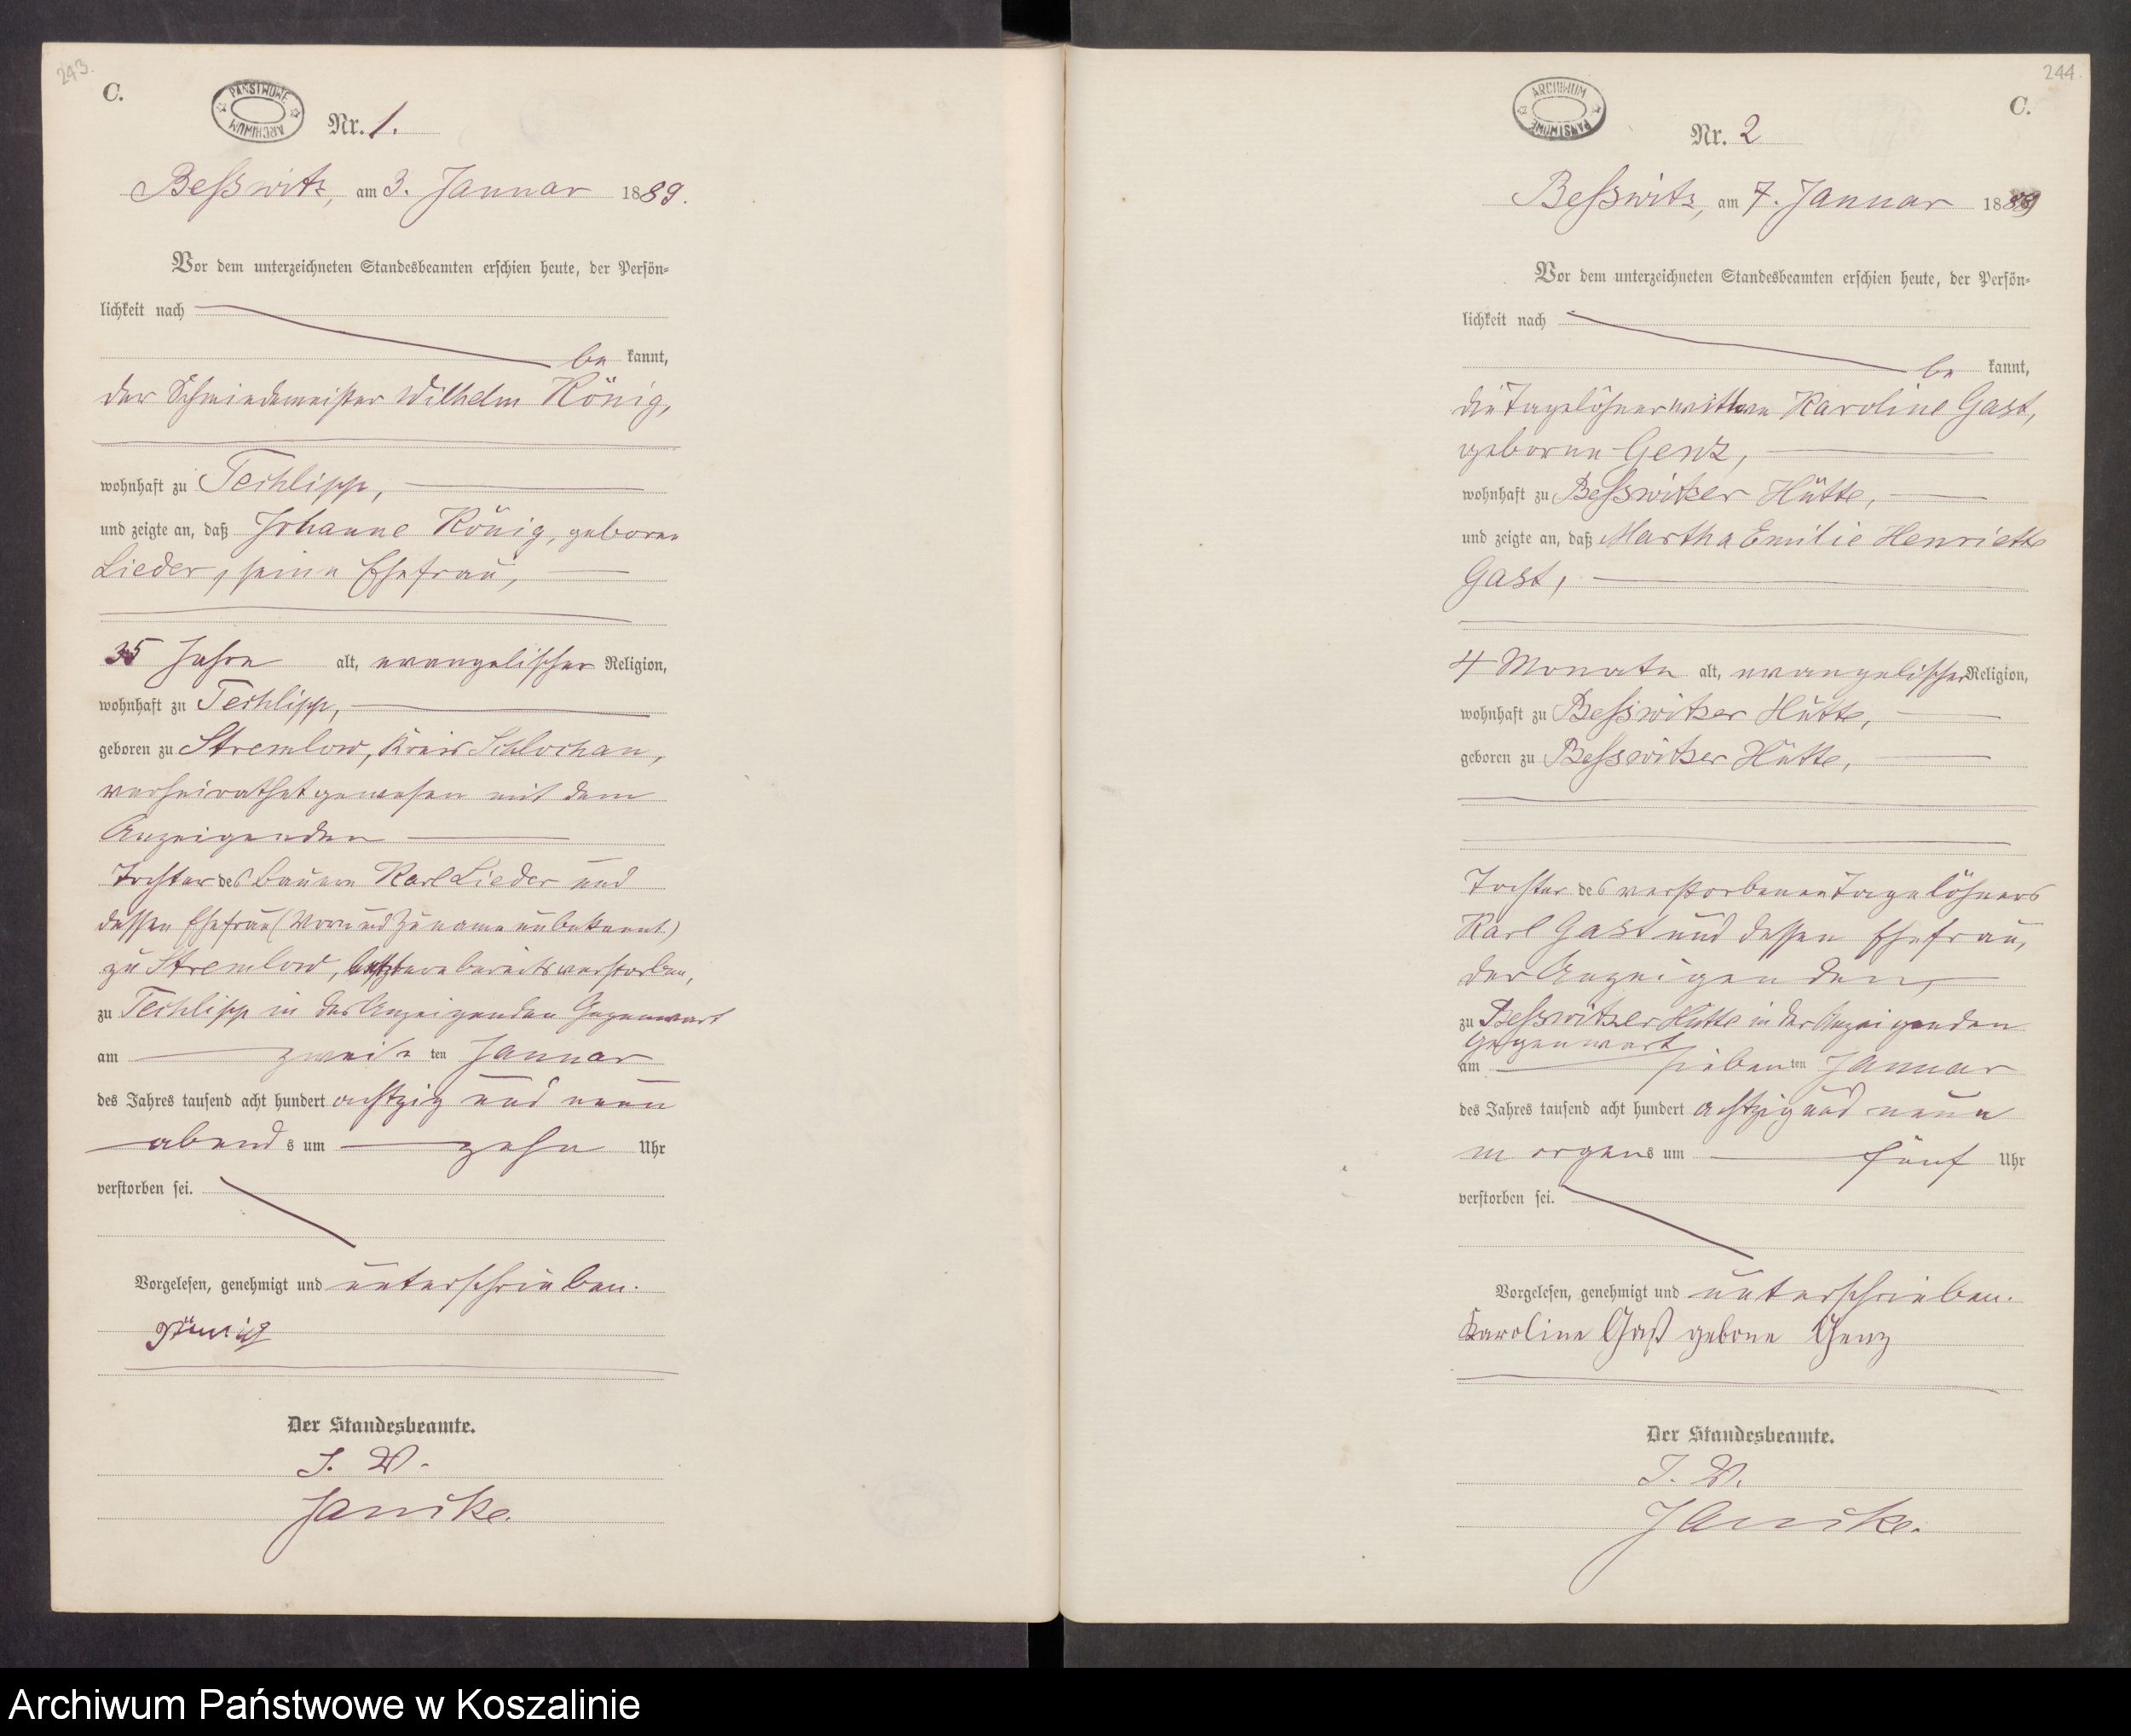 243.
C.
PAŃSTWOWE ARCHIWUM
Nr. 1.
Beßswitz, am 3. Januar 1889.
Vor dem unterzeichneten Standesbeamten erschien heute, der Persön-
lichkeit nach
be kannt,
der Schmiedemeister Wilhelm König,
wohnhaft zu Techlipp,
und zeigte an, daß Johanne König, geborene
Lieder, seine Ehefrau,
35 Jahre alt, evangelischer Religion,
wohnhaft zu Techlipp,
geboren zu Stremlow, Kreis Schlochau,
verheirathet gewesen mit dem
Anzeigenden
Tochter des Bauern Karl Lieder und
dessen Ehefrau (Vor und Zuname unbekannt)
zu Stremlow, letztere bereits verstorben,
zu Techlipp in des Anzeigenden Gegenwart
am zwei ten Januar
des Jahres tausend acht hundert achtzig und neun
abend s um zehn Uhr
verstorben sei.
Vorgelesen, genehmigt und unterschrieben.
König
Der Standesbeamte.
J. V.
Janike.
244.
C.
ARCHIWUM PAŃSTWOWE
Nr. 2
Beßswitz, am 7. Januar 1889
Vor dem unterzeichneten Standesbeamten erschien heute, der Persön-
lichkeit nach
be kannt,
die Tagelöhnerwittwe Karoline Gast,
geborene Genz,
wohnhaft zu Beßswitzer Hütte,
und zeigte an, daß Martha Emilie Henriette
Gast,
4 Monate alt, evangelischer Religion,
wohnhaft zu Beßswitzer Hütte,
geboren zu Beßswitzer Hütte,
Tochter des verstorbenen Tagelöhners
Karl Gast und dessen Ehefrau,
der Anzeigenden,
zu Beßswitzer Hütte in der Anzeigenden
Gegenwart
am sieben ten Januar
des Jahres tausend acht hundert achtzig und neun
morgens um fünf Uhr
verstorben sei.
Vorgelesen, genehmigt und unterschrieben.
Karoline Gast geborne Genz
Der Standesbeamte.
J. V.
Janike.
Archiwum Państwowe w Koszalinie